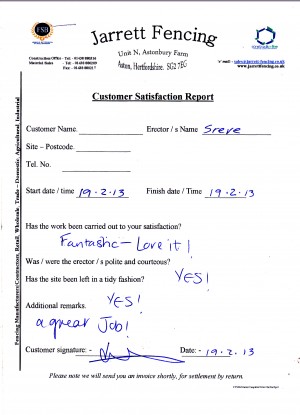 FSB
Jarrett Fencing
Unit N, Astonbury Farm
Aston, Hertfordshire. SG2 7EG
Construction Office - Tel -
Material Sales - Tel -
Fax -
www.jarrettfencing.co.uk
Customer Satisfaction Report
Customer Name. Erector / s Name Steve
Site – Postcode.
Tel. No.
Start date / time 19.2.13 Finish date / Time 19.2.13
Has the work been carried out to your satisfaction?
Fantastic – Love it!
Was / were the erector / s polite and courteous? YES!
Has the site been left in a tidy fashion? YES!
Additional remarks.
a great Job!
Customer signature: - Date: - 19.2.13
Please note we will send you an invoice shortly, for settlement by return.
Fencing Manufacturer/Contractors, Retail, Wholesale, Trade – Domestic, Agricultural, Industrial